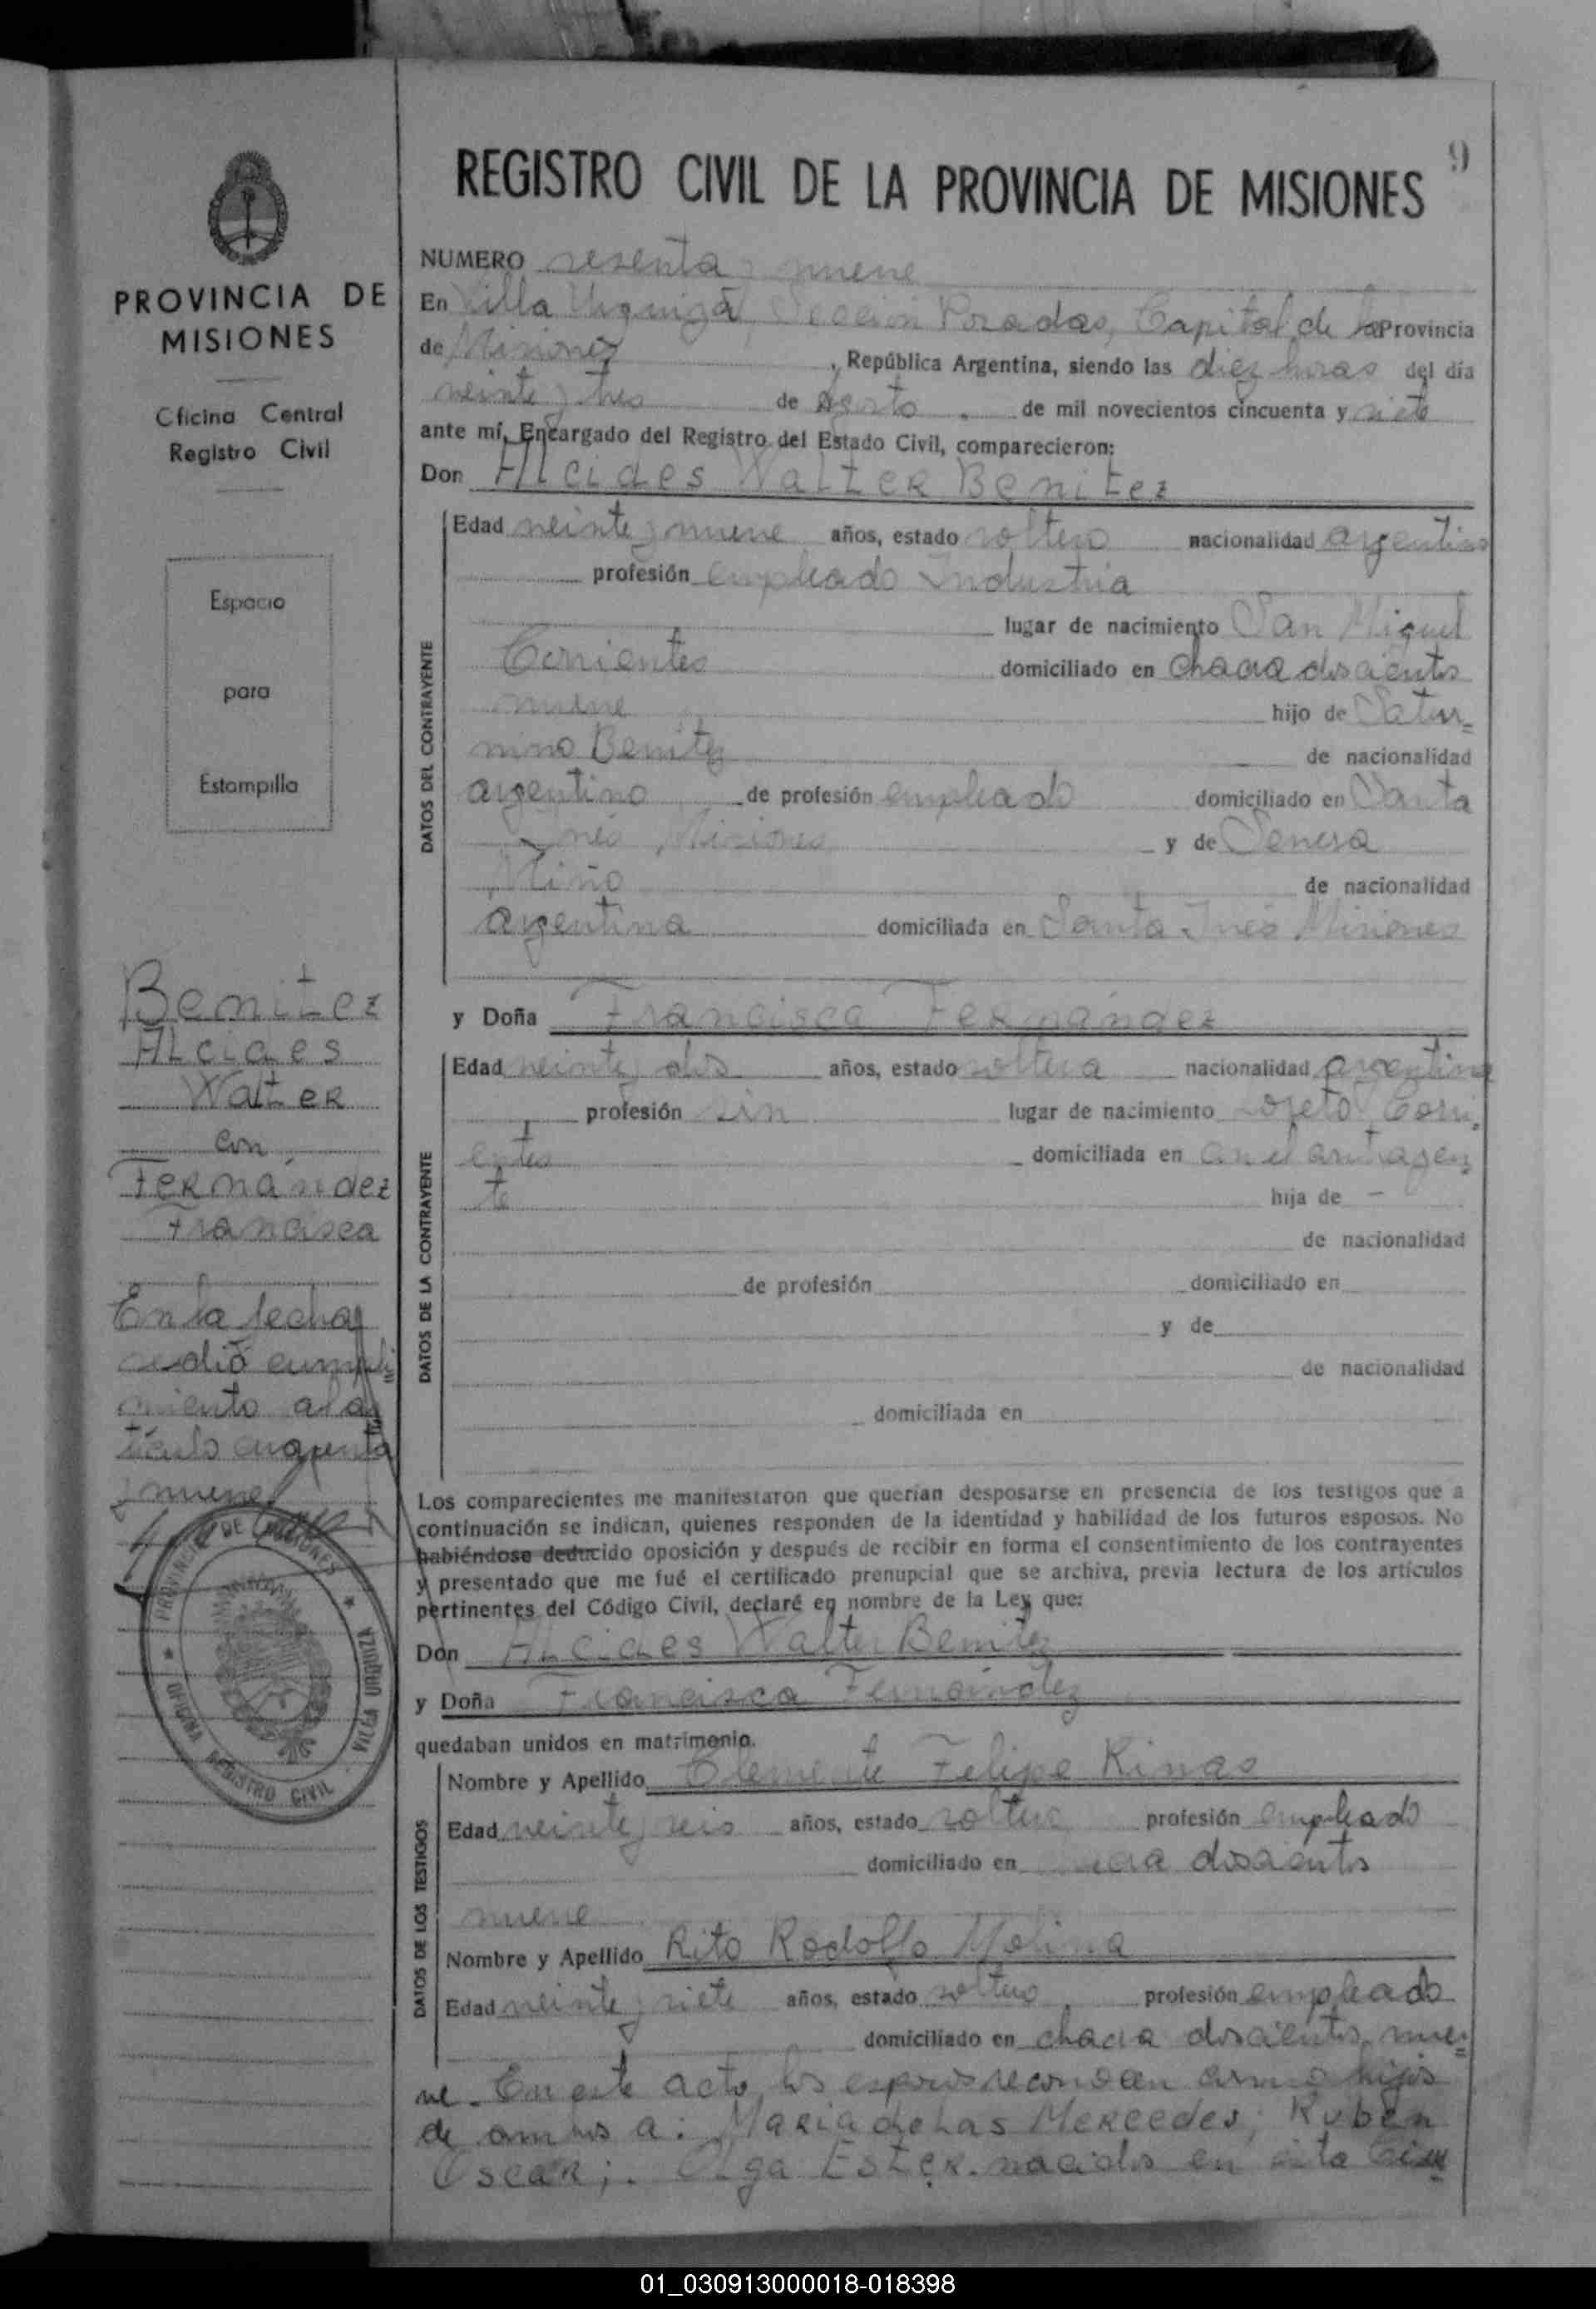 9
REGISTRO CIVIL DE LA PROVINCIA DE MISIONES
PROVINCIA DE
MISIONES
Oficina Central
Registro Civil
Espacio
para
Estampilla
Benitez
Alcides
Walter
con
Fernández
Francisca
En la fecha
se dió cumpli
miento al ar
tículo cincuenta
y nueve
PROVINCIA DE MISIONES
OFICINA REGISTRO CIVIL
VILLA URQUIZA
NUMERO sesenta y nueve
En Villa Urquiza Sección Posadas, Capital de la Provincia
de Misiones, República Argentina, siendo las diez horas del día
veinte y tres de Agosto de mil novecientos cincuenta y siete
ante mí, Encargado del Registro del Estado Civil, comparecieron:
Don Alcides Walter Benitez
DATOS DEL CONTRAYENTE
Edad veinte y nueve años, estado soltero nacionalidad argentino
profesión empleado Industria
lugar de nacimiento San Miguel
Corrientes domiciliado en chacra doscientos
nueve hijo de Satur=
nino Benitez de nacionalidad
argentino de profesión empleado domiciliado en Santa
Inés, Misiones y de
Miño de nacionalidad
argentina domiciliada en Santa Inés Misiones
y Doña Francisca Fernández
DATOS DE LA CONTRAYENTE
Edad veinte y dos años, estado soltera nacionalidad argentina
profesión sin lugar de nacimiento Loreto Corri=
entes domiciliada en
te hija de —
de nacionalidad
de profesión domiciliado en
y de
de nacionalidad
domiciliada en
Los comparecientes me manifestaron que querían desposarse en presencia de los testigos que a
continuación se indican, quienes responden de la identidad y habilidad de los futuros esposos. No
habiéndose deducido oposición y después de recibir en forma el consentimiento de los contrayentes
y presentado que me fué el certificado prenupcial que se archiva, previa lectura de los artículos
pertinentes del Código Civil, declaré en nombre de la Ley que:
Don Alcides Walter Benitez
y Doña Francisca Fernández
quedaban unidos en matrimonio.
DATOS DE LOS TESTIGOS
Nombre y Apellido Clemente Felipe Rivas
Edad veinte y seis años, estado soltero profesión empleado
domiciliado en chacra doscientos
nueve
Nombre y Apellido Rito Rodolfo Molina
Edad veinte y siete años, estado soltero profesión empleado
domiciliado en chacra doscientos nue=
ve. En este acto los esposos reconocen como hijos
de ambos a: Maria de las Mercedes; Ruben
Oscar; Olga Ester. nacidos en esta
01_030913000018-018398